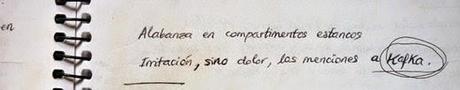 en
Alabanza en compartimentos estancos
Irritación, sino dolor, las menciones a Kafka.